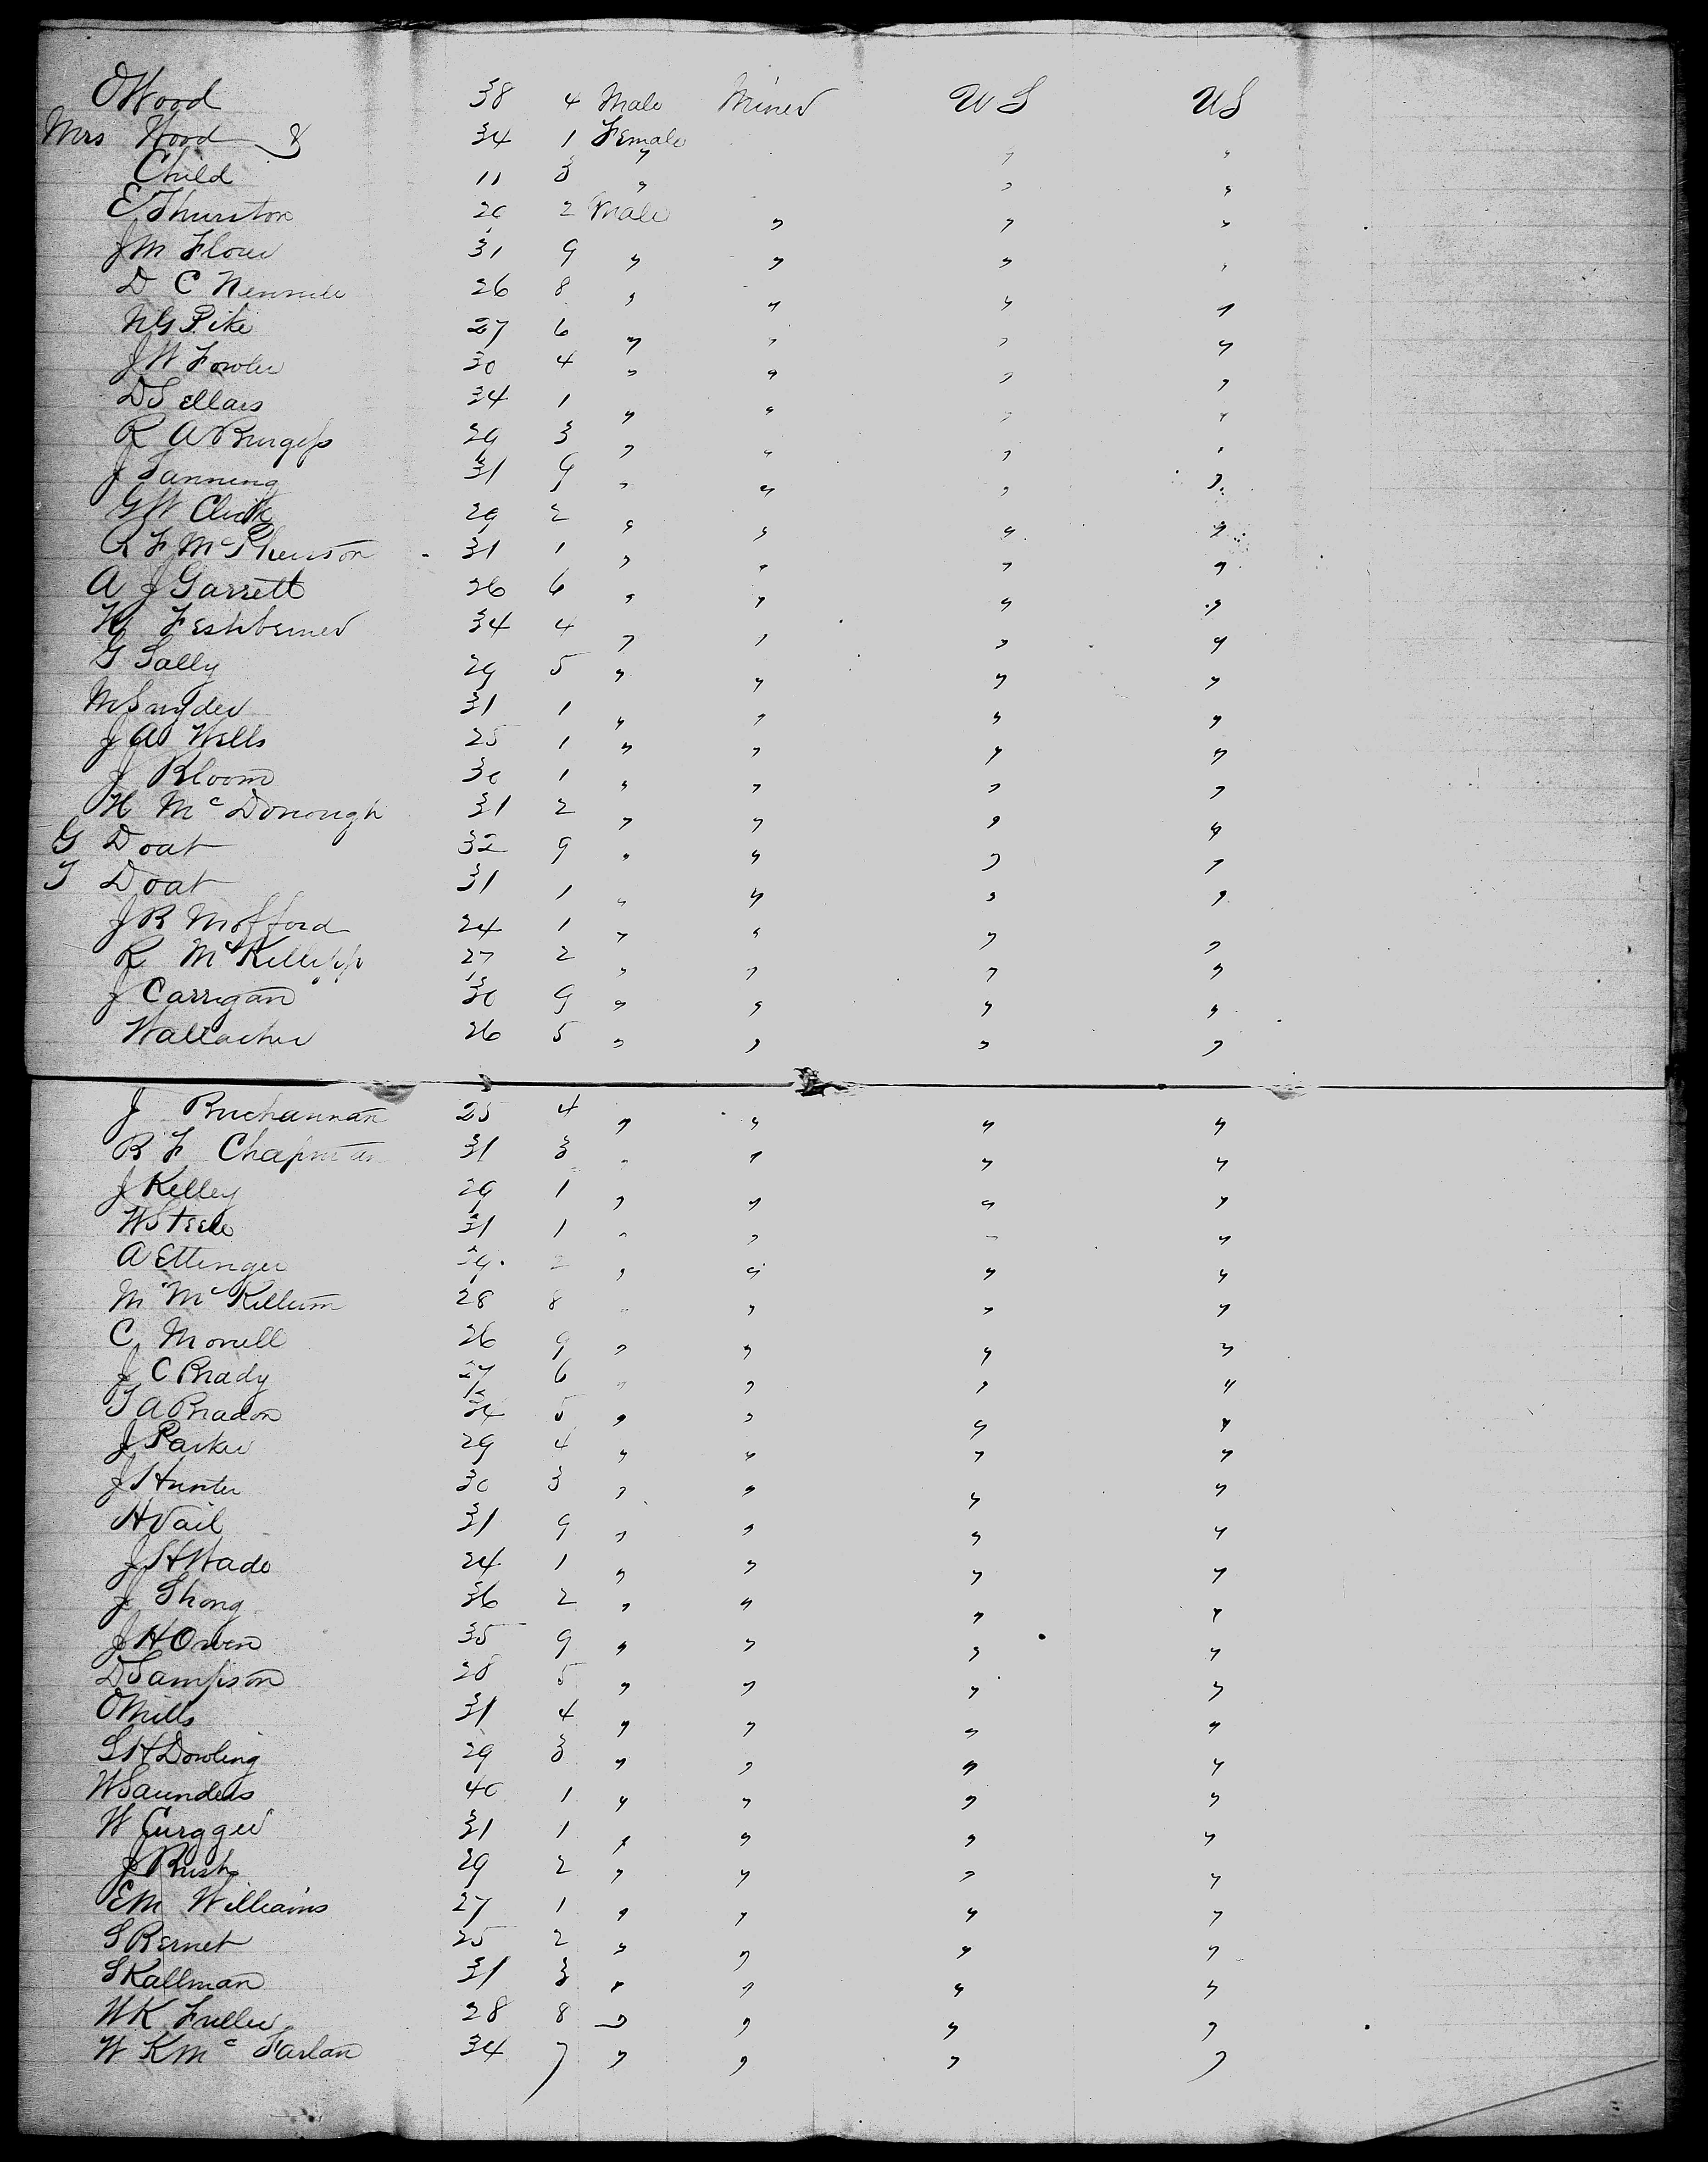 O Wood 38 4 Male Miner U S US
Mrs Wood & 34 1 Female " "
Child 11 3 " " "
E Thurston 26 2 Male " " "
J M Flour 31 9 " " " "
D C 26 8 " " " "
N G Pike 27 6 " " " "
J W Fowler 30 4 " " " "
D Sellars 34 1 " " " "
R A Burgess 29 3 " " " "
J Tanning 31 9 " " " "
G W Click 29 2 " " " "
R F McPherson 31 1 " " " "
A J Garrett 26 6 " " " "
H Feshbeiner 34 4 " " " "
G Sally 29 5 " " " "
M Snyder 31 1 " " " "
J A Wells 25 1 " " " "
J Bloom 30 1 " " " "
H McDonough 31 2 " " " "
G Doat 32 9 " " " "
T Doat 31 1 " " " "
J R Mofford 24 1 " " " "
R McKillipp 27 2 " " " "
J Carrigan 30 9 " " " "
Wallacher 26 5 " " " "
J Buchannan 25 4 " " " "
B F Chapman 31 3 " " " "
J Kelley 29 1 " " " "
W Steele 31 1 " " " "
A Ettinger 39 2 " " " "
M McKillum 28 8 " " " "
C Morrell 26 9 " " " "
J C Brady 27 6 " " " "
T A Bradon 34 5 " " " "
J Parker 29 4 " " " "
J Hunter 30 3 " " " "
H Vail 31 9 " " " "
J H Wade 24 1 " " " "
J Shong 36 2 " " " "
J H Owen 35 9 " " " "
D Sampson 28 5 " " " "
O Mills 31 4 " " " "
S H Dowling 29 3 " " " "
W Saunders 40 1 " " " "
W Curgger 31 1 " " " "
J Rush 29 2 " " " "
E M Williams 27 1 " " " "
S Bernet 25 2 " " " "
S Kallman 31 3 " " " "
W K Fuller 28 8 " " " "
W K McFarlan 34 7 " " " "